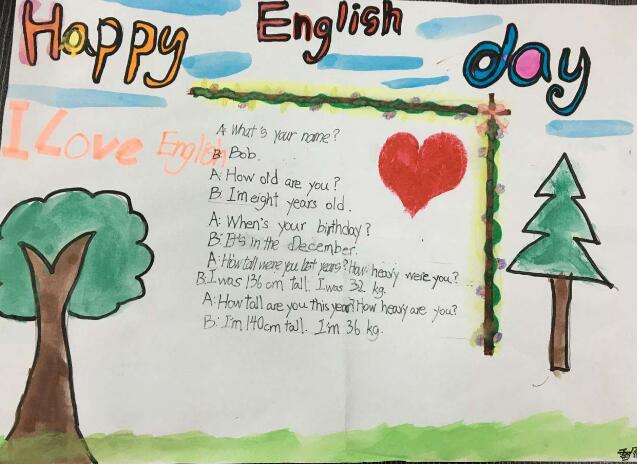 Happy English day
I Love English
A: What's your name?
B: Bob.
A: How old are you?
B: I'm eight years old.
A: When's your birthday?
B: It's in the December.
A: How tall were you last years? How heavy were you?
B: I was 136 cm tall. I was 32 kg.
A: How tall are you this year? How heavy are you?
B: I'm 140cm tall. I'm 36 kg.